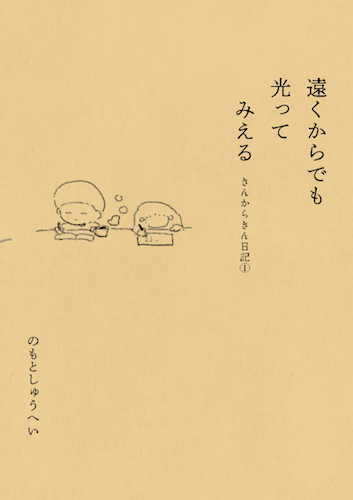 遠くからでも
光って
みえる
きんからきん日記①
のもとしゅうへい